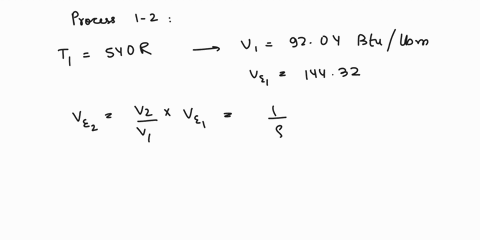 Process 1-2 :
T₁ = 540R → U₁ = 92.04 Btu/lbm
Vε₁ = 144.32
Vε₂ = V₂/V₁ × Vε₁ = 1/8